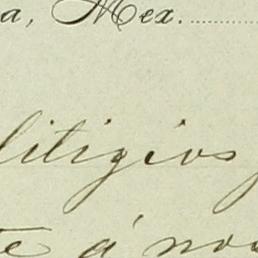 a, Mex.
litigios
te á nos